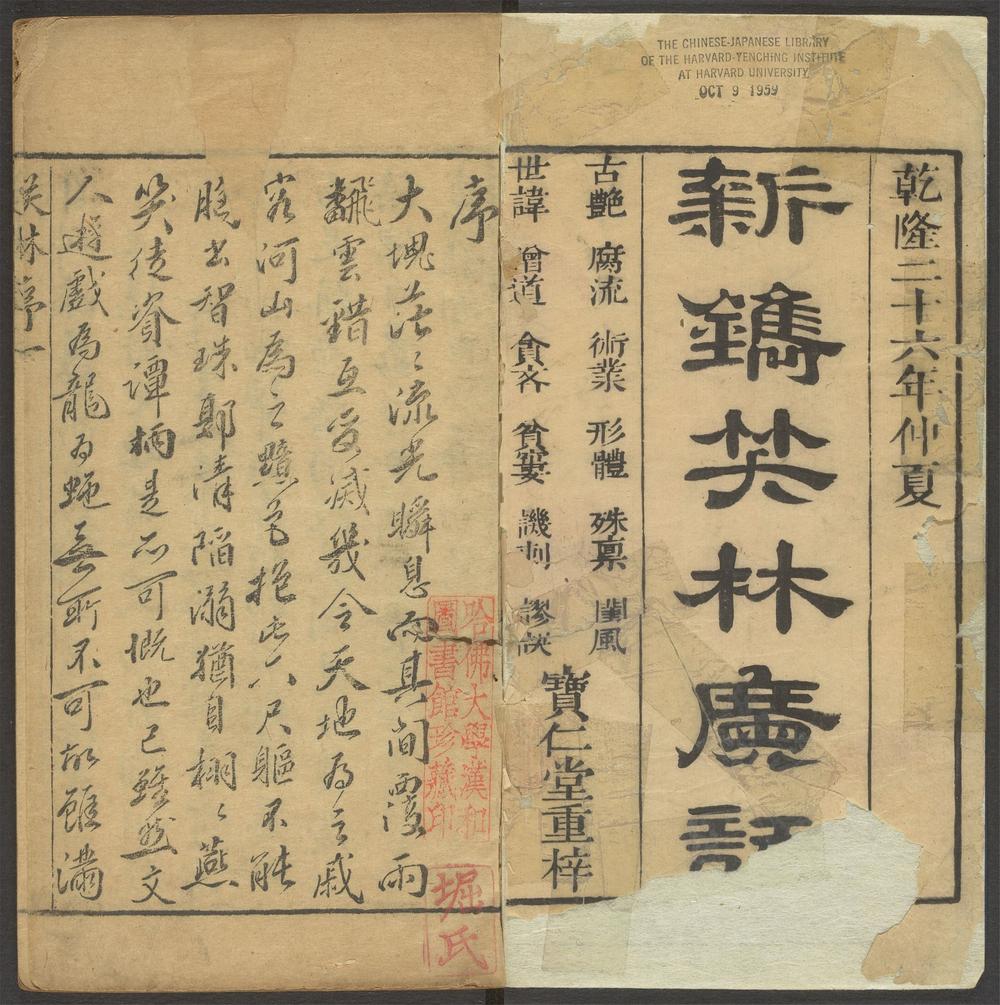 THE CHINESE-JAPANESE LIBRARY
OF THE HARVARD-YENCHING INSTITUTE
AT HARVARD UNIVERSITY
OCT 9 1959
乾隆二十六年仲夏
新鐫笑林廣記
古艷 腐流 術業 形體 殊禀 閨風
世諱 僧道 貪吝 貧窶 譏刺 謬誤
寶仁堂重梓
序
大塊茫〻流光瞬息而其間覆雨
翻雲錯互變滅幾令天地為之戚
容河山為之黯色抱此六尺軀不能
脫出智珠鄭清陷溺猶自栩〻燕
笑徒資譚柄是亦可慨也已雖然文
人遊戲為龍為蠅無所不可故雖潚
笑林序 一
哈佛大學漢和
圖書館珍藏印
堀氏